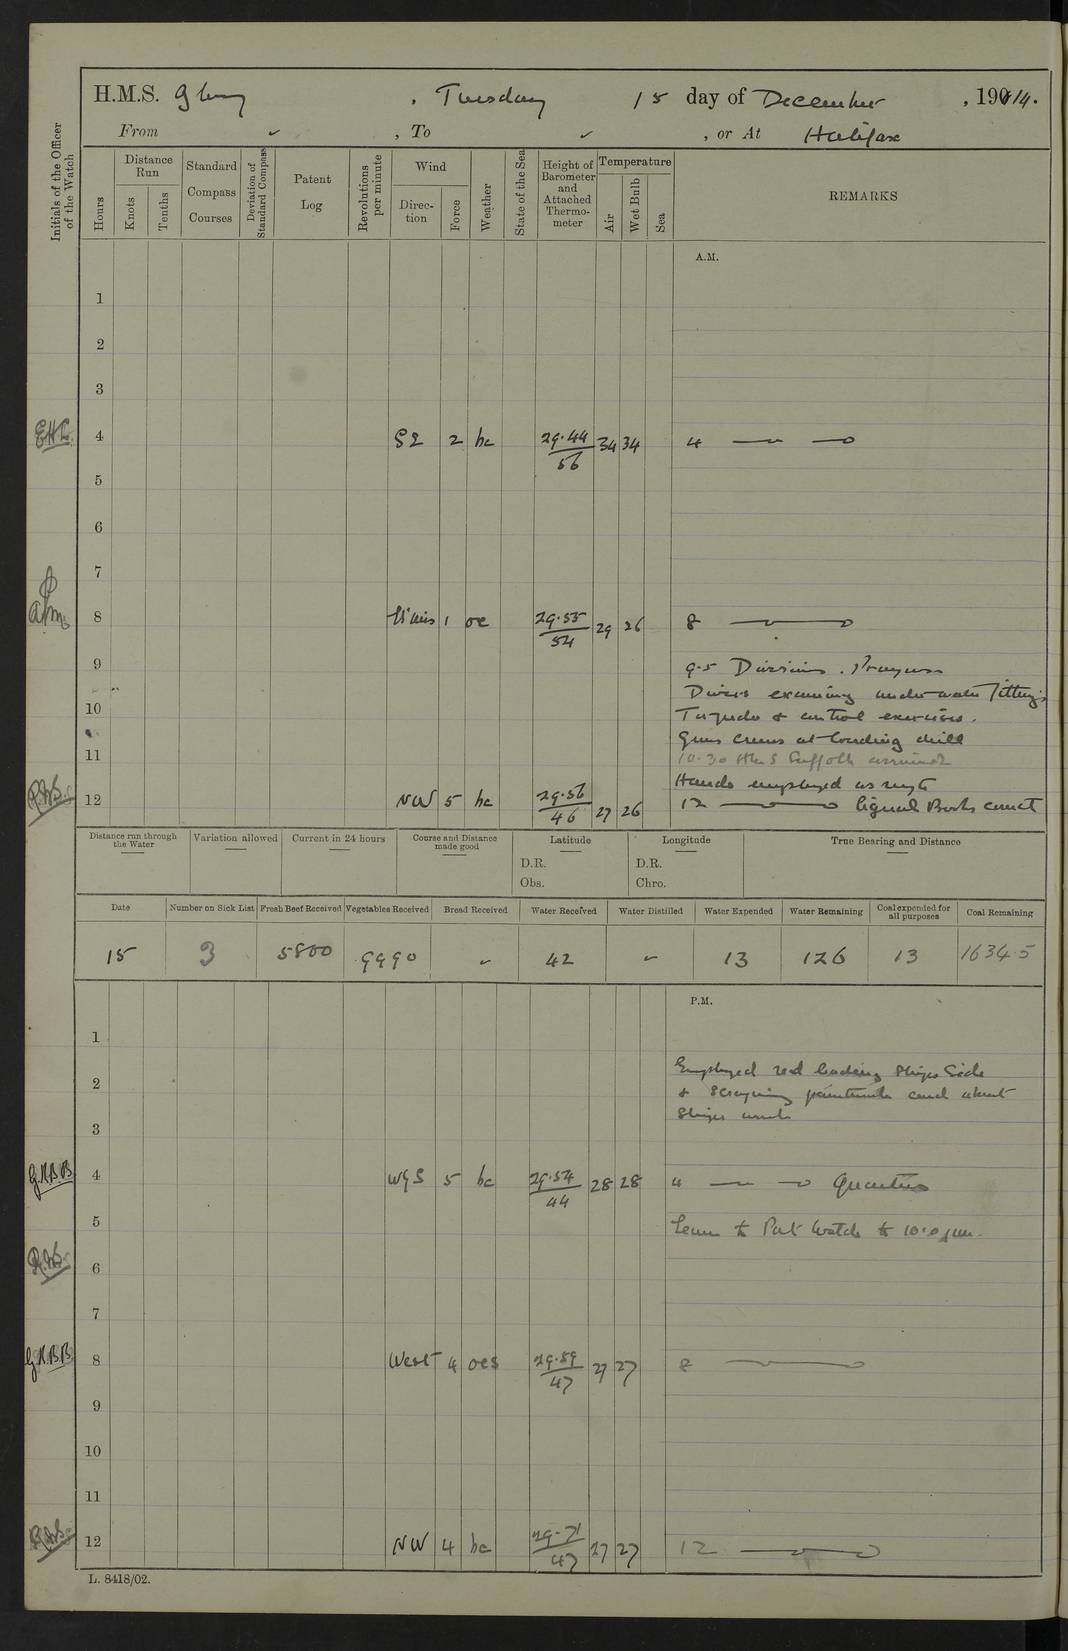 H.M.S. Glory , Tuesday 15 day of December , 1914.
From ✓ , To ✓ , or At Halifax
Initials of the Officer of the Watch
Hours
Distance Run
Knots
Tenths
Standard Compass Courses
Deviation of Standard Compass
Patent Log
Revolutions per minute
Wind
Direction
Force
Weather
State of the Sea
Height of Barometer and Attached Thermometer
Temperature
Air
Wet Bulb
Sea
REMARKS
A.M.
1
2
3
EHC 4 SE 2 bc 29.44/56 34 34 4
5
6
7
8 1 oc 29.55/54 29 26 8
9 9.5 Divisions. Prayers
Divers examining under water fittings
10 Torpedo & control exercises.
Guns crews at loading drill
11 10.30 HMS Suffolk arrived
Hands employed as reqte
12 NW 5 bc 29.56/46 27 26 12 Signal Books correct
Distance run through the Water
Variation allowed
Current in 24 hours
Course and Distance made good
Latitude
D.R.
Obs.
Longitude
D.R.
Chro.
True Bearing and Distance
Date
Number on Sick List
Fresh Beef Received
Vegetables Received
Bread Received
Water Received
Water Distilled
Water Expended
Water Remaining
Coal expended for all purposes
Coal Remaining
15 3 5800 9990 ✓ 42 ✓ 13 126 13 1634.5
P.M.
1
Employed red leading Ships Side
2 & scraping paintwork and about
Ships work
3
G.K.B.B 4 WyS 5 bc 29.54/44 28 28 4 Quarters
5 Leave to Port Watch to 10.0 pm.
6
7
G.K.B.B. 8 West 4 ocs 29.59/47 27 27 8
9
10
11
12 NW 4 bc 29.71/47 27 27 12
L. 8418/02.